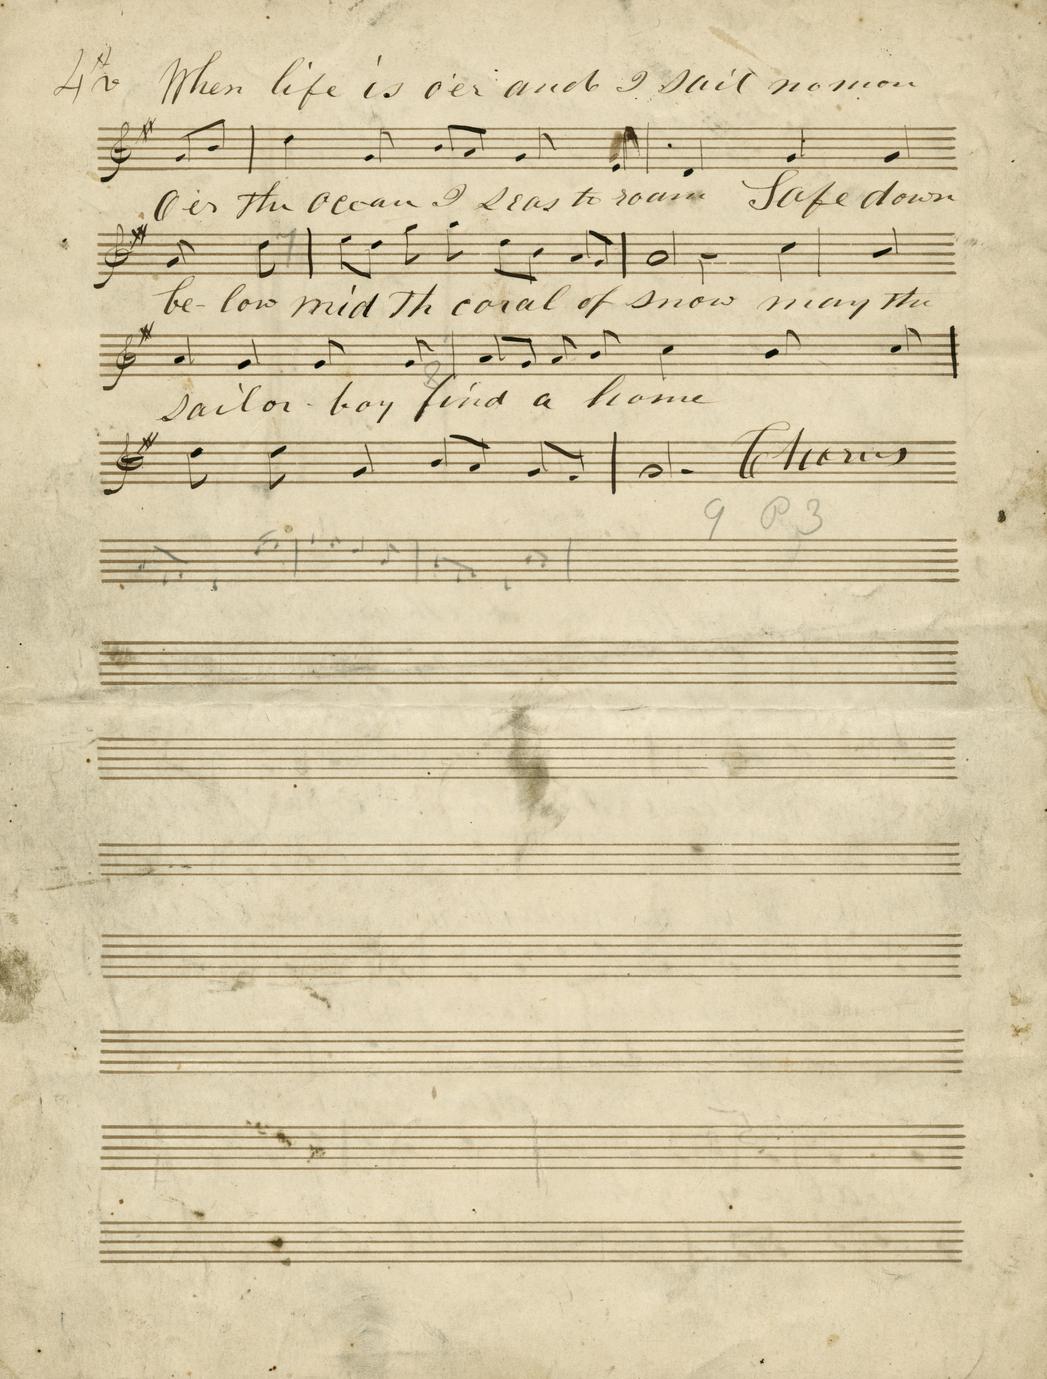 4th v When life is o'er and I sail no mor
O'er the ocean I seas to roam Safe down
be-low mid Th coral of snow may the
sailor-boy find a home
Chorus
9 P 3